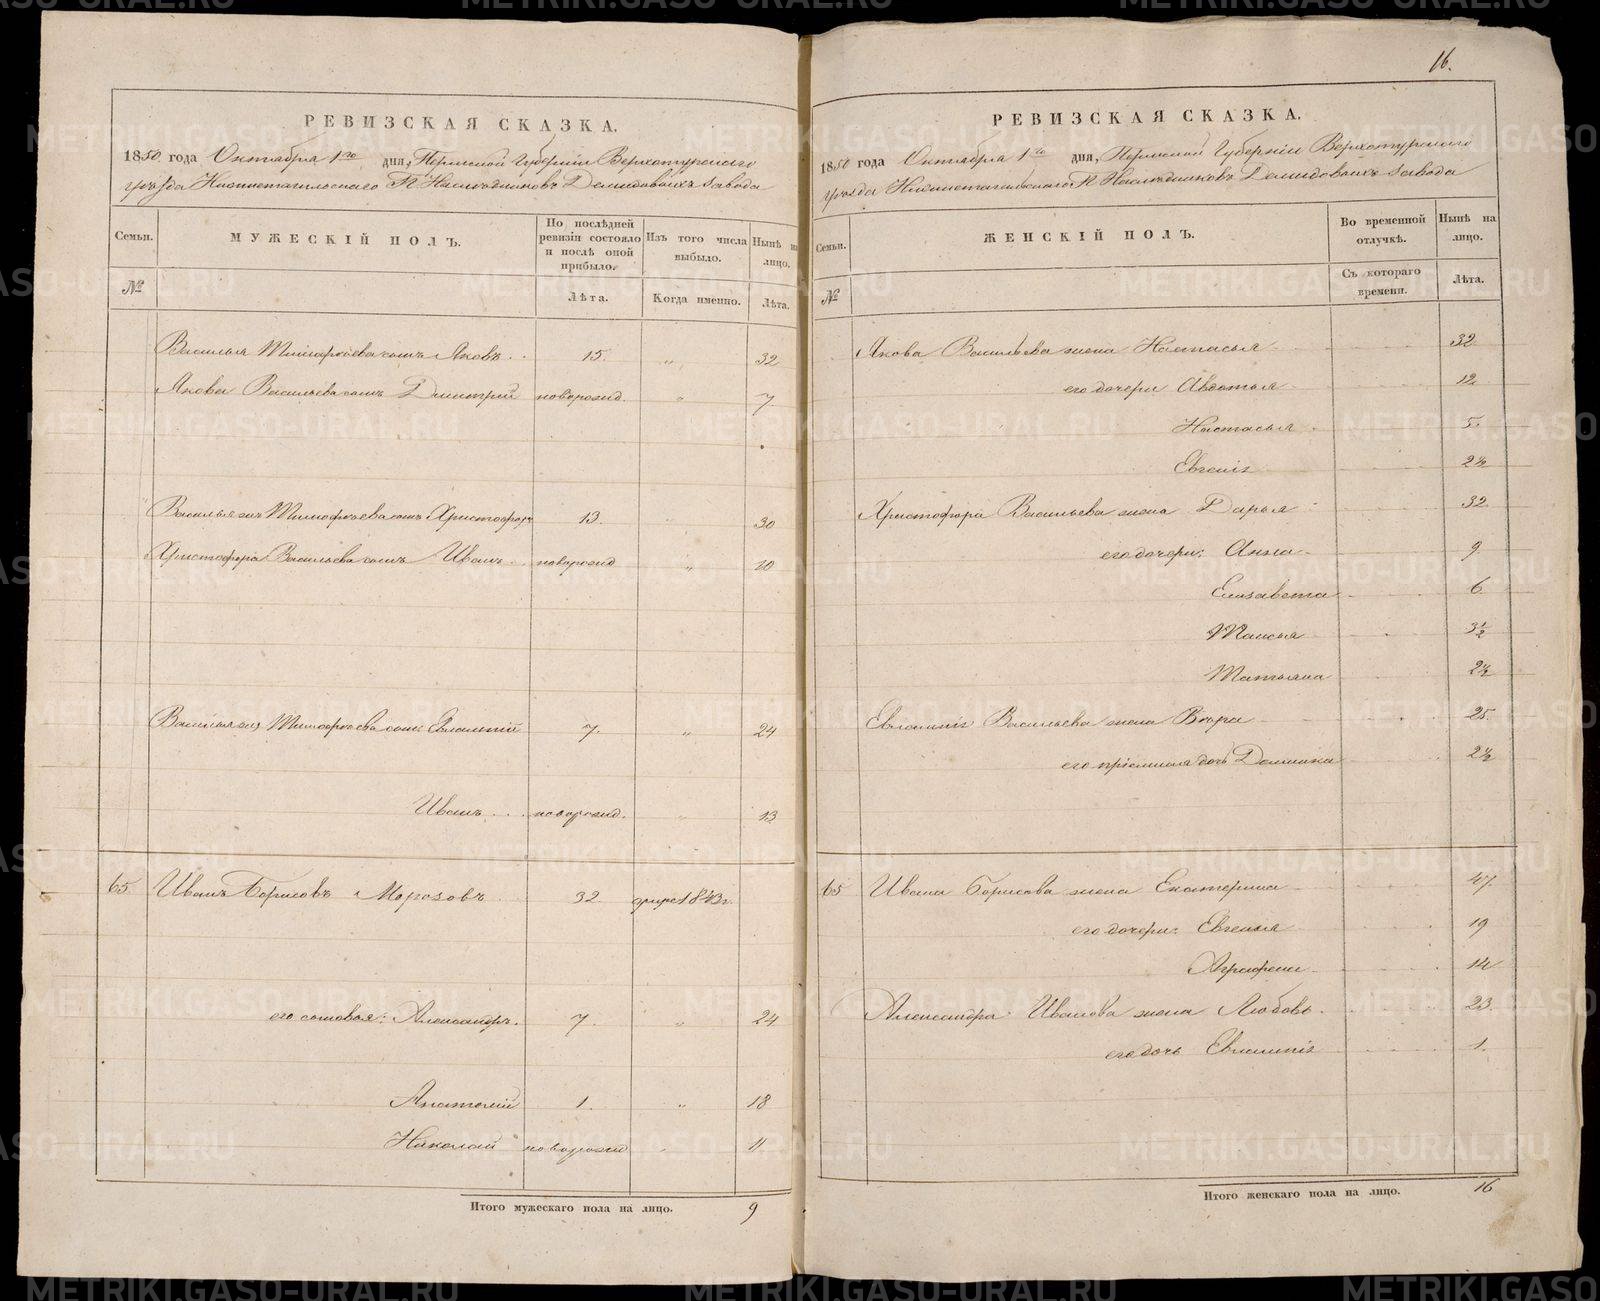 16.
РЕВИЗСКАЯ СКАЗКА.
1850 года Октября 1го дня, Пермской Губернии Верхотурского
уѣзда Нижнетагильскаго Г. Наслѣдниковъ Демидовыхъ завода
Семьи. МУЖЕСКІЙ ПОЛЪ. По послѣдней ревизіи состояло и послѣ оной прибыло. Изъ того числа выбыло. Нынѣ на лицо.
№ Лѣта. Когда именно. Лѣта.
Василья Тимофѣева сынъ Яковъ 15. „ 32
Якова Васильева сынъ Дмитрій новорожд. „ 7
Василья Тимофѣева сынъ Христофоръ 13. „ 30
Христофора Васильева сынъ Иванъ новорожд „ 10
Василья Тимофѣева сынъ Евлампій 7. „ 24
Иванъ новорожд. „ 13
65 Иванъ Борисовъ Морозовъ 32 1843г.
его сыновья: Александръ. 7. „ 24
Анатолій 1. „ 18
Николай новорожд „ 11
Итого мужескаго пола на лицо. 9
РЕВИЗСКАЯ СКАЗКА.
1850 года Октября 1го дня, Пермской Губерніи Верхотурского
уѣзда Нижнетагильскаго Г. Наслѣдниковъ Демидовыхъ завода
Семьи. ЖЕНСКІЙ ПОЛЪ. Во временной отлучкѣ. Нынѣ на лицо.
№ Съ котораго времени. Лѣта.
Якова Васильева жена Настасья 32
его дочери Авдотья 12
Настасья 5
Евгенія 2½
Христофора Васильева жена Дарья 32
его дочери: Анна 9
Елизавета 6
Таисья 3½
Татьяна 2½
Евлампія Васильева жена Вѣра 25.
его пріемная дочь Домника 2½
65 Ивана Борисова жена Екатерина 47
его дочери: Евгенья 19
Аграфена 14
Александра Иванова жена Любовь. 23
его дочь Евлампія 1.
Итого женскаго пола на лицо. 16
METRIKI.GASO-URAL.RU